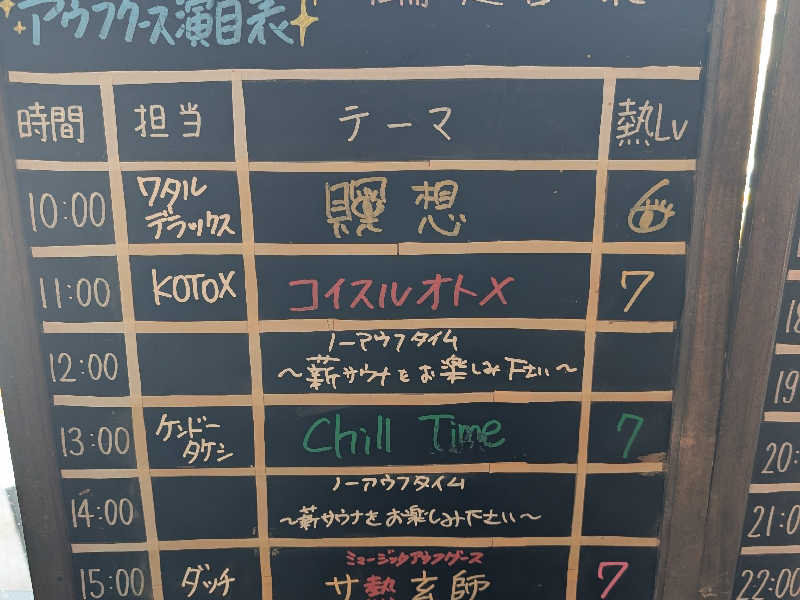 アウフグース演目表
時間 担当 テーマ 熱Lv
10:00 ワタル デラックス 瞑想 6
11:00 KOTOX コイスルオトメ 7
12:00 ノーアウフタイム
～薪サウナをお楽しみ下さい～
13:00 ケンドー タケシ Chill Time 7
14:00 ノーアウフタイム
～薪サウナをお楽しみ下さい～
15:00 ダッチ ミュージックアウフグース
サ熱玄師 7
19
20:
21:0
22:00